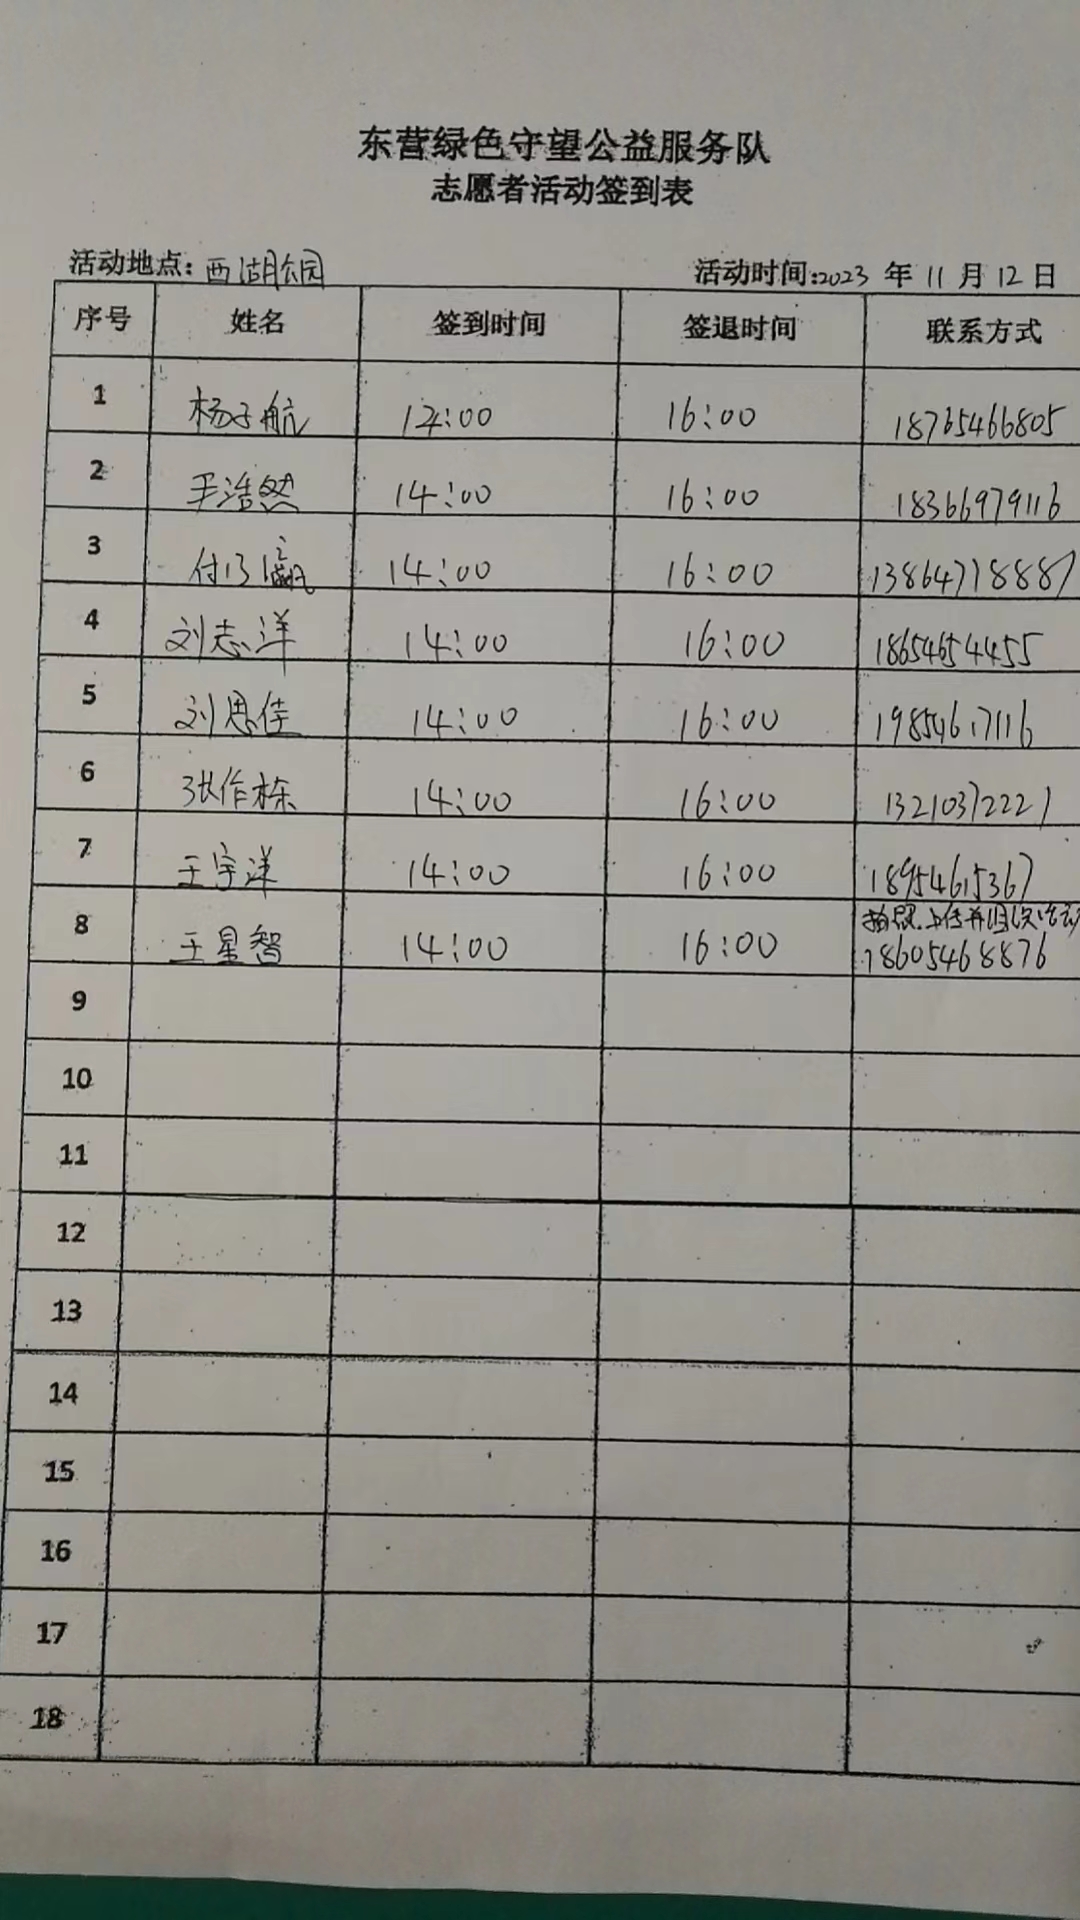 东营绿色守望公益服务队
志愿者活动签到表
活动地点:西湖公园 活动时间:2023年11月12日
序号 姓名 签到时间 签退时间 联系方式
1 杨子航 14:00 16:00 18765466805
2 王浩然 14:00 16:00 18366979116
3 14:00 16:00 13864718887
4 刘志洋 14:00 16:00 18654654455
5 刘思佳 14:00 16:00 19854617116
6 张作栋 14:00 16:00 13210372227
7 王宇洋 14:00 16:00 18954615367
拍照、上传并
8 王星智 14:00 16:00 18605468876
9
10
11
12
13
14
15
16
17
18